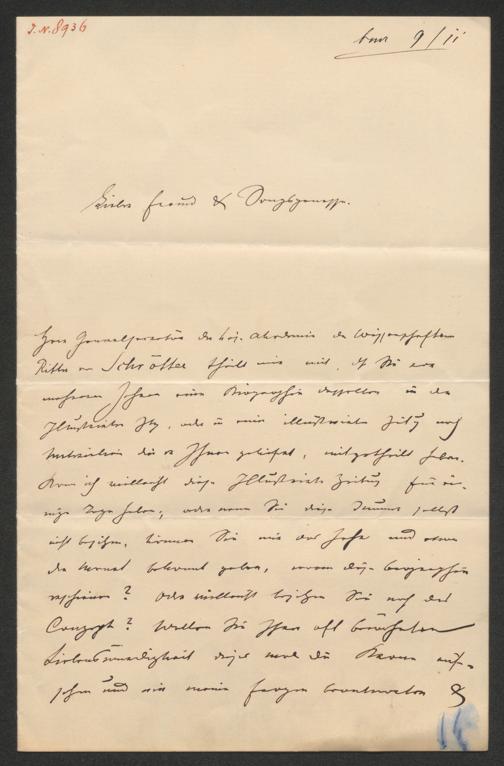 J.N. 8936
9/ii
Lieber Freund &
Herr Generalsecretär der kais. Akademie der Wissenschaften
Ritter von Schrötter theilt mir mit, daß Sie vor
mehreren Jahren eine Biographie desselben in der
Illustrirten Ztg, oder in einer illustrirten Zeitg nach
Materialien die er Ihnen geliefert, mitgetheilt haben.
Kann ich vielleicht diese Illustrirte Zeitung für ei-
nige Tage haben; oder wenn Sie diese Nummer selbst
nicht besitzen, können Sie mir das Jahr und etwa
den Monat bekannt geben, worin diese Biographie
erschienen? Oder vielleicht besitzen Sie noch das
Concept? Wollen Sie Ihre oft bewährte
Liebenswürdigkeit dieses mal die Krone auf-
setzen und mir meine Fragen beantworten &